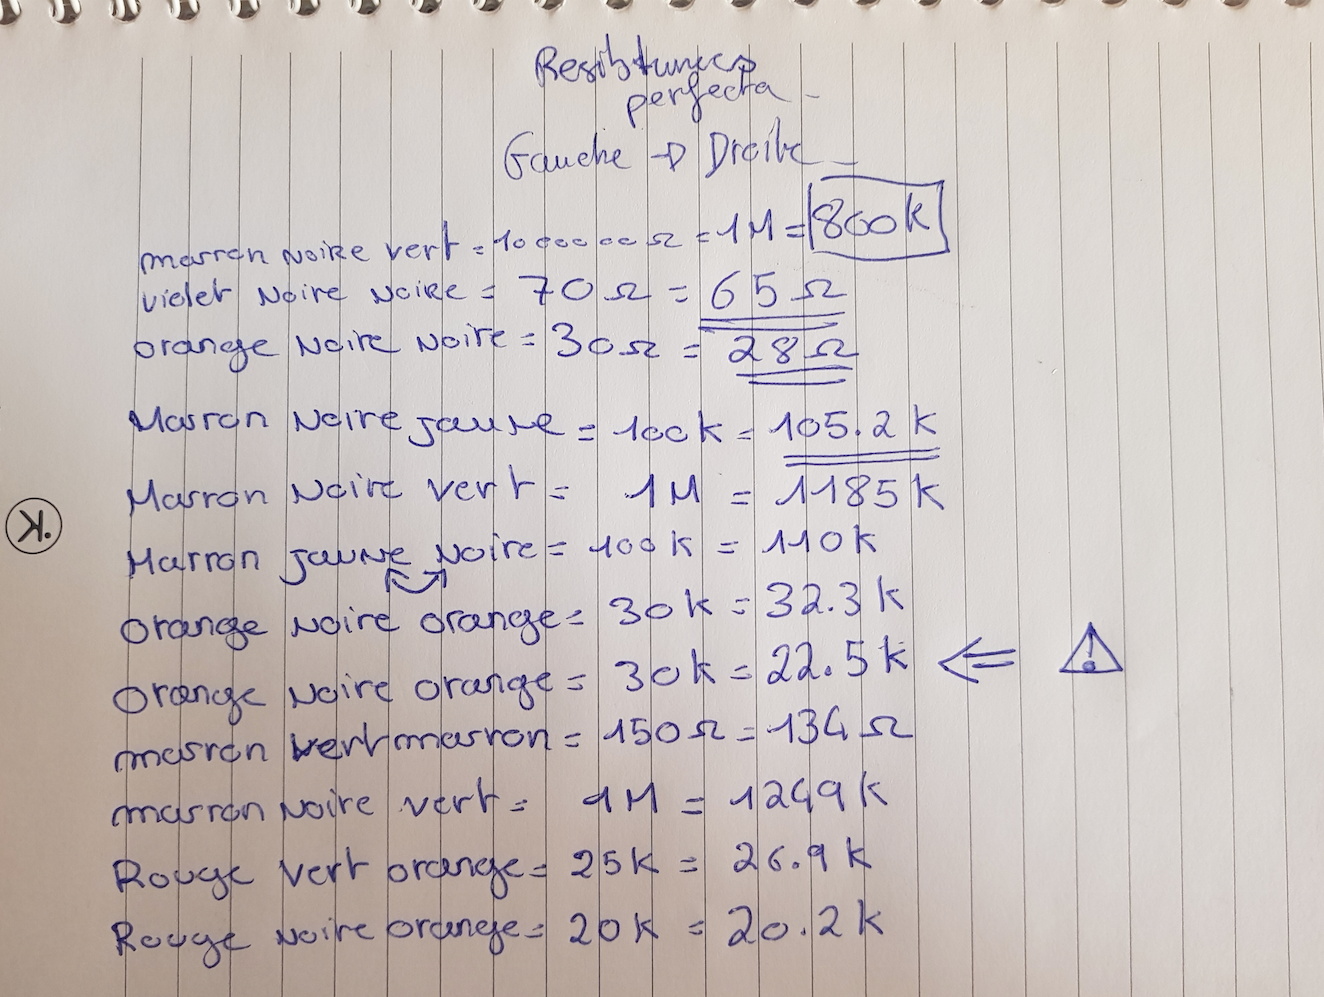 Resistances
perfecta -
Gauche → Droite -
marron NOIRE vert = 1000000 Ω = 1M = 800k
violet NOIRE NOIRE = 70 Ω = 65 Ω
orange NOIRE NOIRE = 30Ω = 28Ω
Marron NOIRE jaune = 100k = 105.2k
Marron NOIRE vert = 1M = 1185k
Marron jaune NOIRE = 100k = 110k
orange NOIRE orange = 30k = 32.3k
orange NOIRE orange = 30k = 22.5k ⇐ !
marron vert marron = 150Ω = 134Ω
marron NOIRE vert = 1M = 1249k
Rouge vert orange = 25k = 26.9k
Rouge NOIRE orange = 20k = 20.2k